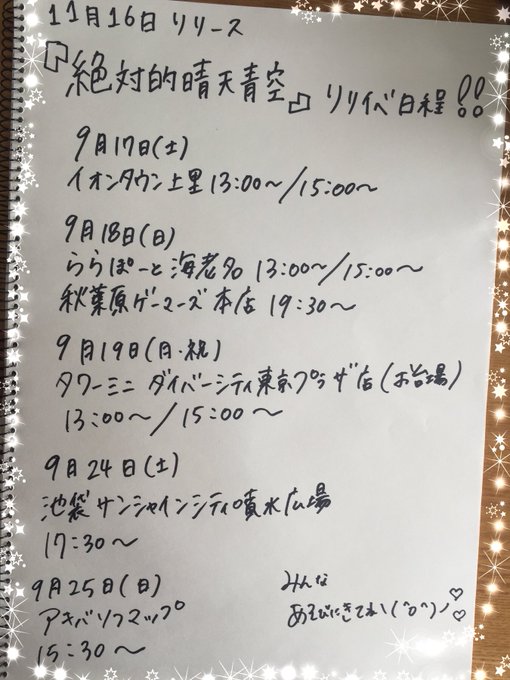 11月16日リリース
『絶対的晴天青空』リリイベ日程!!
9月17日(土)
イオンタウン上里 13:00〜/15:00〜
9月18日(日)
ららぽーと海老名 13:00〜/15:00〜
秋葉原ゲーマーズ本店 19:30〜
9月19日(月・祝)
タワーミニ ダイバーシティ東京プラザ店(お台場)
13:00〜/15:00〜
9月24日(土)
池袋サンシャインシティ噴水広場
17:30〜
9月25日(日)
アキバソフマップ
15:30〜
みんな
あそびにきてね\(^o^)ノ♡♡